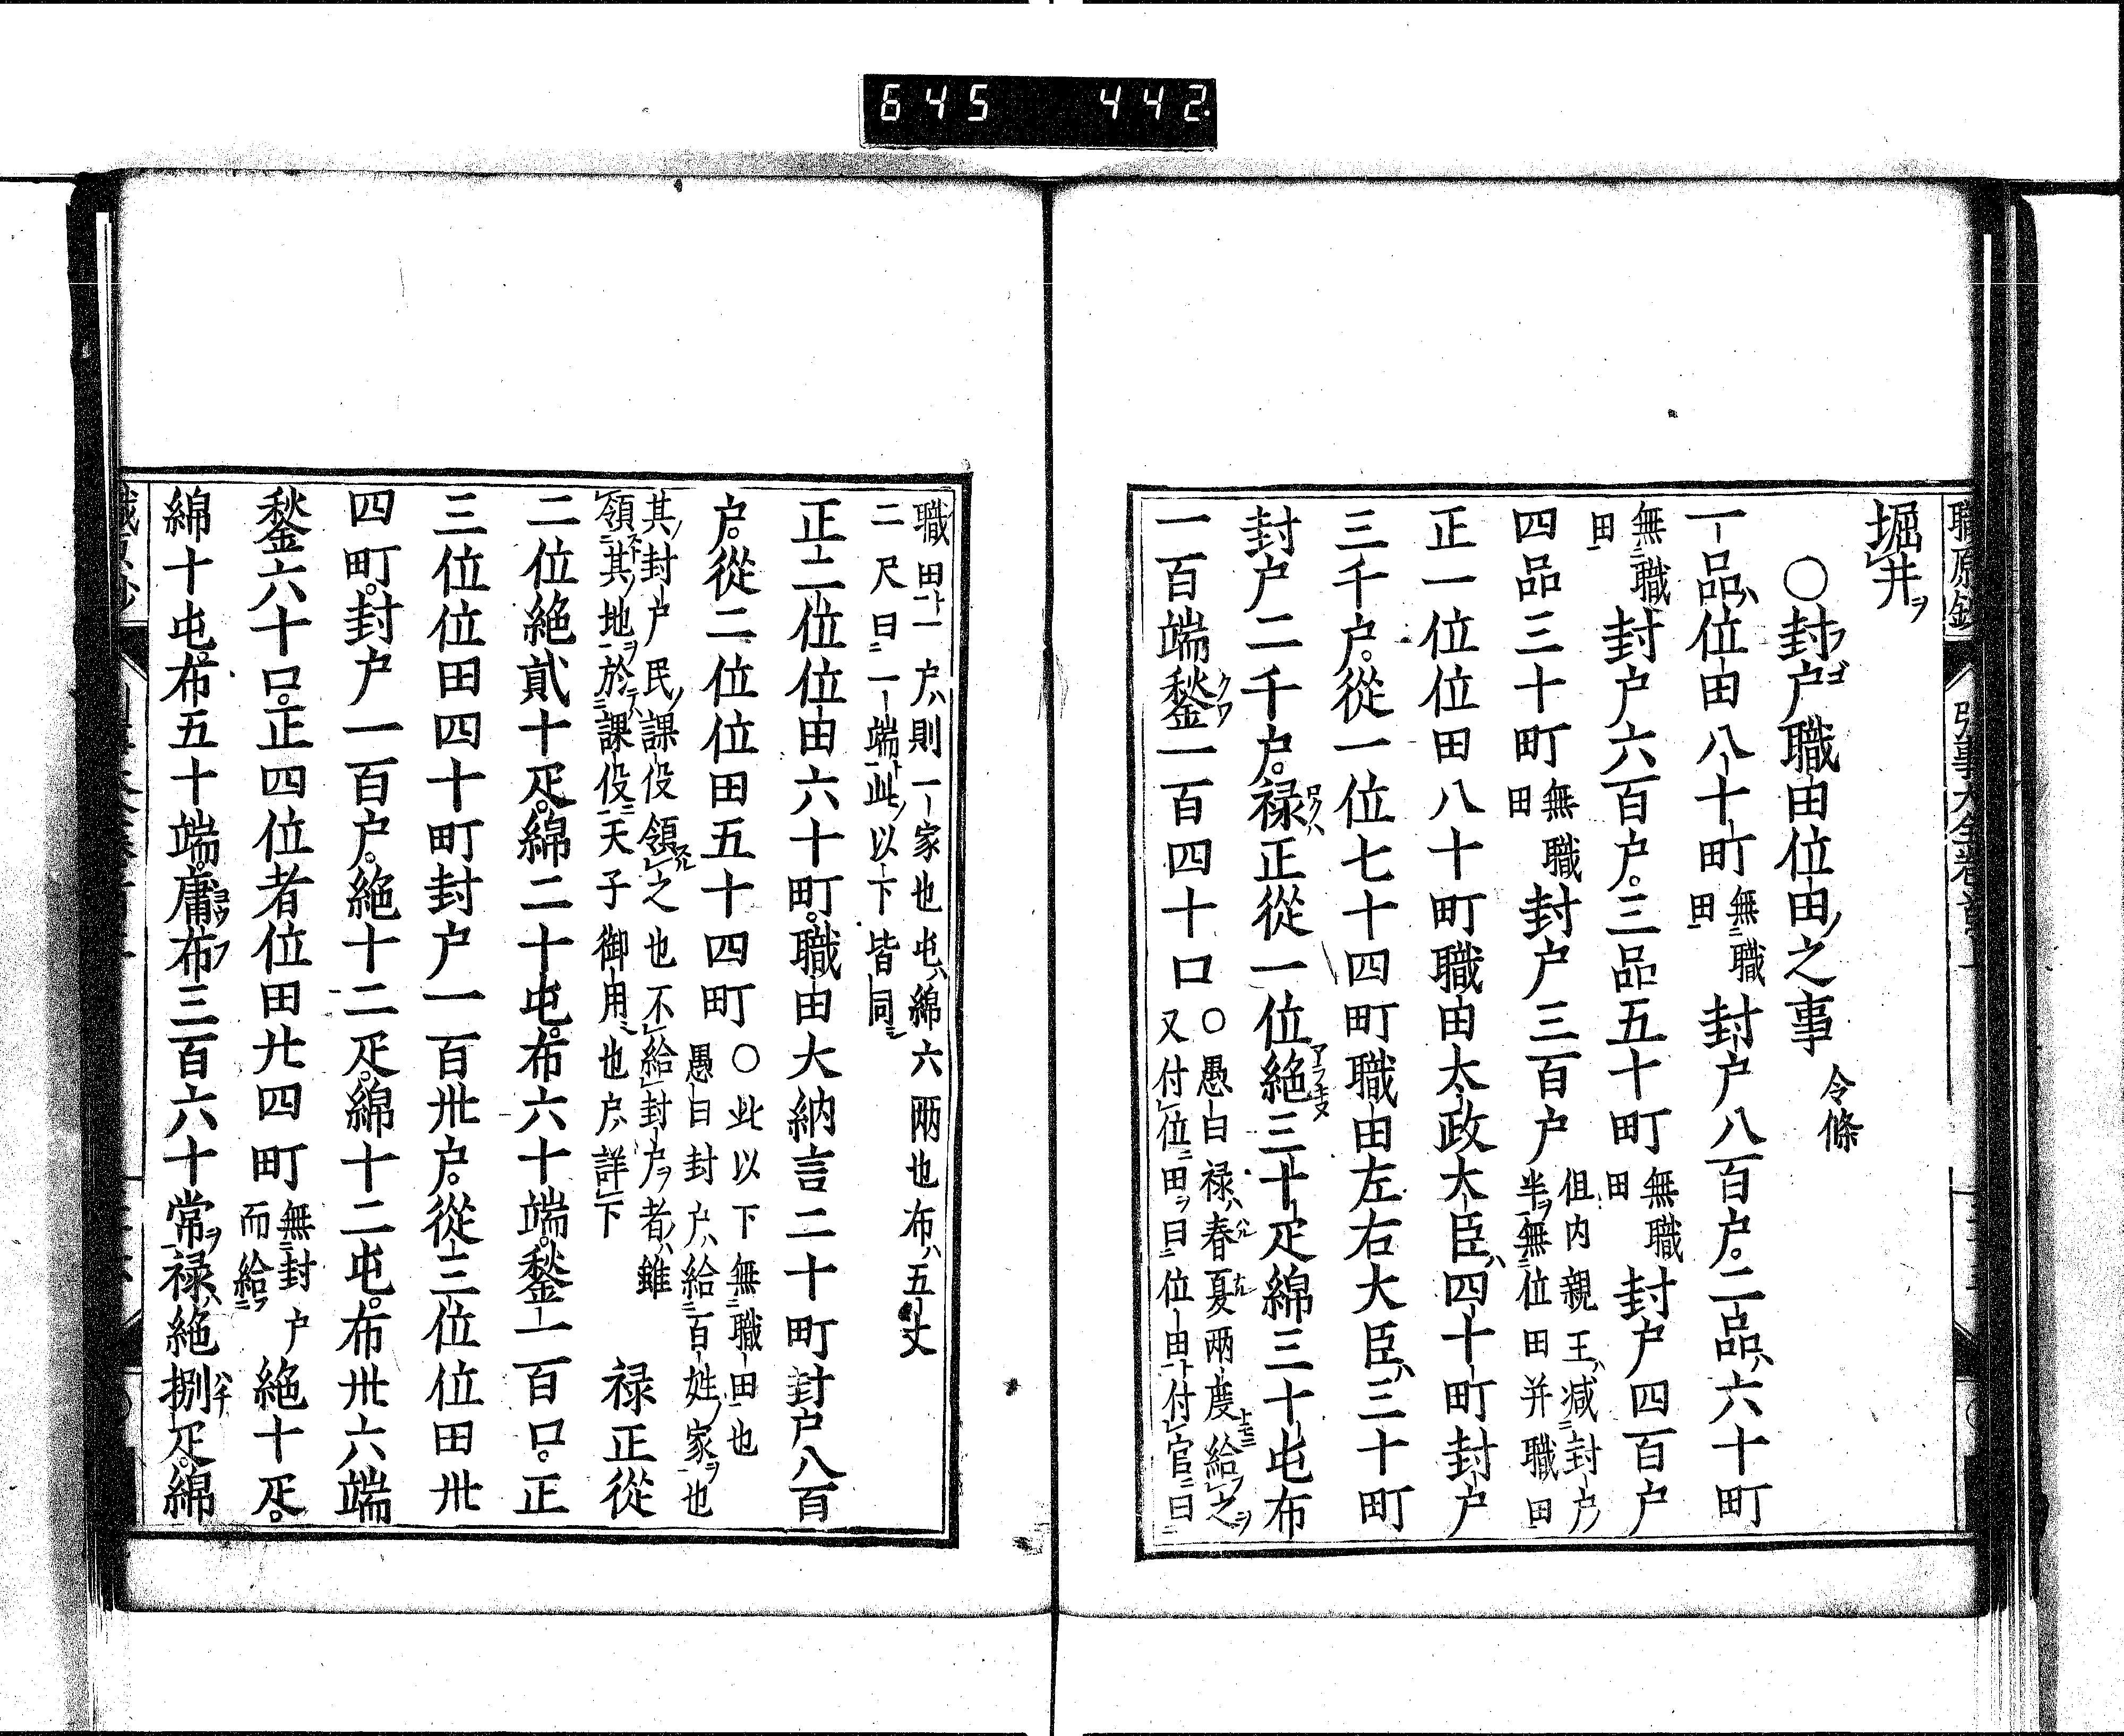 645 442
堀井ヲ
〇封戸職田位田ノ之事 令條
一品ハ位田八十町無職田封戸八百戸。二品ハ六十町
無職田封戸六百戸。三品五十町無職田封戸四百戸
四品三十町無職田封戸三百戸但内親王ハ減封戸ノ半ヲ無位田并職田
正一位位田八十町職田太政大臣ハ四十町封戸
三千戸。從一位七十四町職田左右大臣ハ三十町
封戸二千戸。禄ロクハ正從一位絁アフキヌ三十疋綿三十屯布
一百端鍫クワ一百四十口〇愚曰禄ハ春夏兩度給之ヲ又付位ニ田ヲ曰位田ト付官ニ曰
職田ト一戸ハ則一家也屯ハ綿六兩也布ハ五丈
二尺曰一端ト此ノ以下皆同
正二位位田六十町。職田大納言二十町封戸八百
戸。從二位位田五十四町〇此以下無職田也愚曰封戸ハ給百姓ノ家ヲ也
其ノ封戸民ノ課役領之也不給封戸ヲ者ハ雖
領其ノ地ヲ於テハ課役ニ天子御用也戸ハ詳下 禄正從
二位絁貳十疋。綿二十屯。布六十端。鍫一百口。正
三位位田四十町封戸一百卅戸。從三位位田卅
四町。封戸一百戸。絁十二疋。綿十二屯。布卅六端
鍫六十口。正四位者位田廿四町無封戸而給絁十疋。
綿十屯布五十端。庸布三百六十常ヲ禄ハ絁捌疋。綿